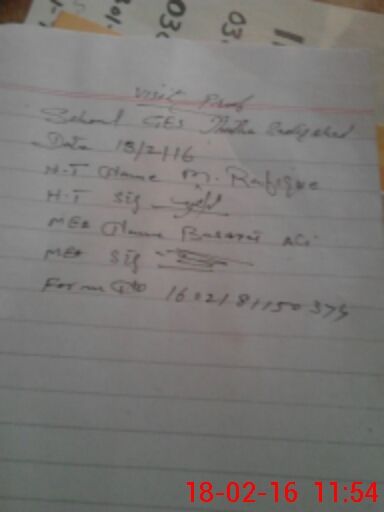 Visit Proof
School GES Thatha
Date 18/2/16
H.T Name M. Rafique
H.T Sig
MEA Name Basarat Ali
MEA Sig
Form No 1602181150375
18-02-16 11:54